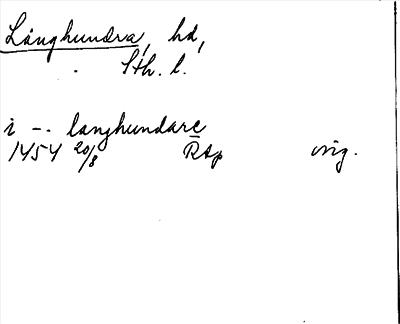 Långhundra, hd,
Sth. l.
i -- langhundare
1454 20/8 RAp orig.